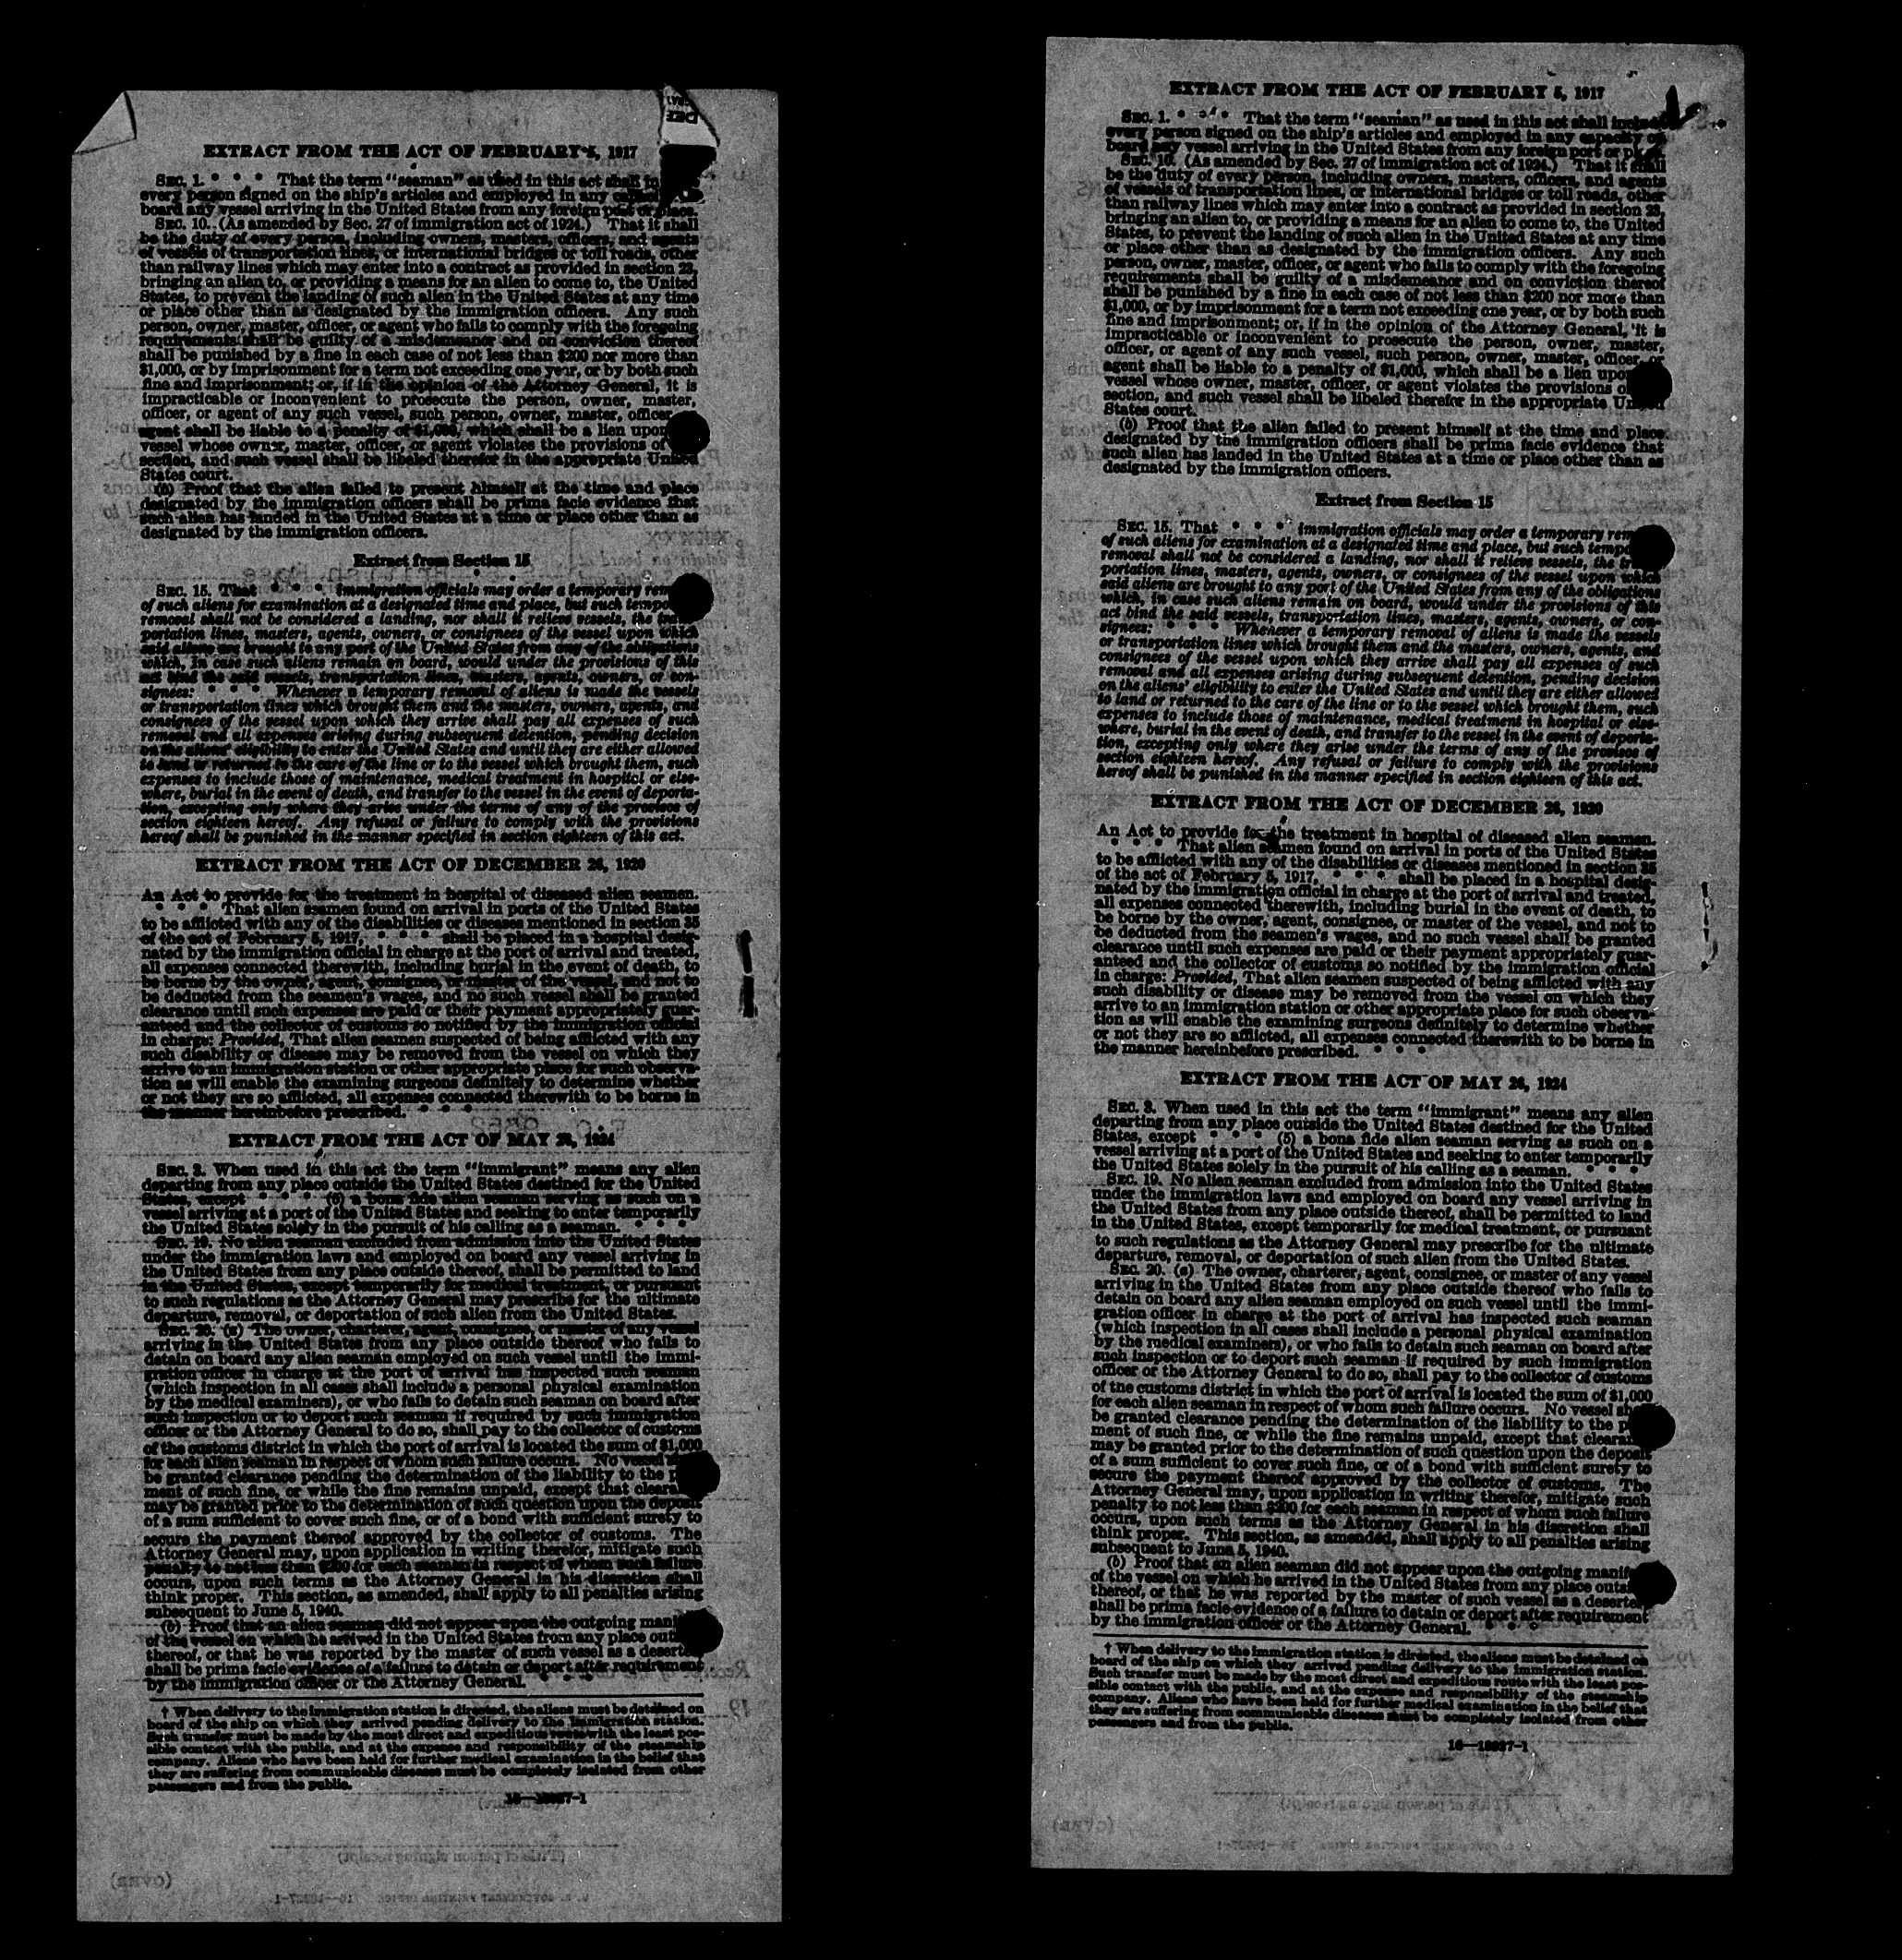 EXTRACT FROM THE ACT OF FEBRUARY 5, 1917
SEC. 1. * * * That the term "seaman" as used in this act shall
every person signed on the ship's articles and employed in any
board any vessel arriving in the United States from any foreign port or place.
SEC. 10. (As amended by Sec. 27 of immigration act of 1924.) That it shall
be the duty of every person, including owners, masters, officers, and agents
of vessels of transportation lines, or international bridges or toll roads, other
than railway lines which may enter into a contract as provided in section 23,
bringing an alien to, or providing a means for an alien to come to, the United
States, to prevent the landing of such alien in the United States at any time
or place other than as designated by the immigration officers. Any such
person, owner, master, officer, or agent who fails to comply with the foregoing
requirements shall be guilty of a misdemeanor and on conviction thereof
shall be punished by a fine in each case of not less than $200 nor more than
$1,000, or by imprisonment for a term not exceeding one year, or by both such
fine and imprisonment; or, if in the opinion of the Attorney General, it is
impracticable or inconvenient to prosecute the person, owner, master,
officer, or agent of any such vessel, such person, owner, master, officer
agent shall be liable to a penalty of $1,000, which shall be a lien upon
vessel whose owner, master, officer, or agent violates the provisions of
section, and such vessel shall be libeled therefor in the appropriate United
States court.
(b) Proof that the alien failed to present himself at the time and place
designated by the immigration officers shall be prima facie evidence that
such alien has landed in the United States at a time or place other than as
designated by the immigration officers.
Extract from Section 15
SEC. 15. That * * * immigration officials may order a temporary
of such aliens for examination at a designated time and place, but such
removal shall not be considered a landing, nor shall it relieve vessels, the
portation lines, masters, agents, owners, or consignees of the vessel upon which
said aliens are brought to any port of the United States from any of the obligations
which, in case such aliens remain on board, would under the provisions of this
act bind the said vessels, transportation lines, masters, agents, owners, or con-
signees: * * * Whenever a temporary removal of aliens is made the vessels
or transportation lines which brought them and the masters, owners, agents, and
consignees of the vessel upon which they arrive shall pay all expenses of such
removal and all expenses arising during subsequent detention, pending decision
on the aliens' eligibility to enter the United States and until they are either allowed
to land or returned to the care of the line or to the vessel which brought them, such
expenses to include those of maintenance, medical treatment in hospital or else-
where, burial in the event of death, and transfer to the vessel in the event of deporta-
tion, excepting only where they arise under the terms of any of the provisos of
section eighteen hereof. Any refusal or failure to comply with the provisions
hereof shall be punished in the manner specified in section eighteen of this act.
EXTRACT FROM THE ACT OF DECEMBER 26, 1920
An Act to provide for the treatment in hospital of diseased alien seamen.
* * * That alien seamen found on arrival in ports of the United States
to be afflicted with any of the disabilities or diseases mentioned in section 35
of the act of February 5, 1917, * * * shall be placed in a hospital desig-
nated by the immigration official in charge at the port of arrival and treated,
all expenses connected therewith, including burial in the event of death, to
be borne by the owner, agent, consignee, or master of the vessel, and not to
be deducted from the seamen's wages, and no such vessel shall be granted
clearance until such expenses are paid or their payment appropriately guar-
anteed and the collector of customs so notified by the immigration official
in charge: Provided, That alien seamen suspected of being afflicted with any
such disability or disease may be removed from the vessel on which they
arrive to an immigration station or other appropriate place for such observa-
tion as will enable the examining surgeons definitely to determine whether
or not they are so afflicted, all expenses connected therewith to be borne in
the manner hereinbefore prescribed. * * *
EXTRACT FROM THE ACT OF MAY 26, 1924
SEC. 3. When used in this act the term "immigrant" means any alien
departing from any place outside the United States destined for the United
States, except * * * (5) a bona fide alien seaman serving as such on a
vessel arriving at a port of the United States and seeking to enter temporarily
the United States solely in the pursuit of his calling as a seaman. * * *
SEC. 19. No alien seaman excluded from admission into the United States
under the immigration laws and employed on board any vessel arriving in
the United States from any place outside thereof, shall be permitted to land
in the United States, except temporarily for medical treatment, or pursuant
to such regulations as the Attorney General may prescribe for the ultimate
departure, removal, or deportation of such alien from the United States.
SEC. 20. (a) The owner, charterer, agent, consignee, or master of any vessel
arriving in the United States from any place outside thereof who fails to
detain on board any alien seaman employed on such vessel until the immi-
gration officer in charge at the port of arrival has inspected such seaman
(which inspection in all cases shall include a personal physical examination
by the medical examiners), or who fails to detain such seaman on board after
such inspection or to deport such seaman if required by such immigration
officer or the Attorney General to do so, shall pay to the collector of customs
of the customs district in which the port of arrival is located the sum of $1,000
for each alien seaman in respect of whom such failure occurs. No vessel
be granted clearance pending the determination of the liability to the
ment of such fine, or while the fine remains unpaid, except that
may be granted prior to the determination of such question upon the deposit
of a sum sufficient to cover such fine, or of a bond with sufficient surety to
secure the payment thereof approved by the collector of customs. The
Attorney General may, upon application in writing therefor, mitigate such
penalty to not less than $200 for each seaman in respect of whom such failure
occurs, upon such terms as the Attorney General in his discretion shall
think proper. This section, as amended, shall apply to all penalties arising
subsequent to June 5, 1940.
(b) Proof that an alien seaman did not appear upon the outgoing
of the vessel on which he arrived in the United States from any place
thereof, or that he was reported by the master of such vessel as a deserter,
shall be prima facie evidence of a failure to detain or deport after requirement
by the immigration officer or the Attorney General. * * *
† When delivery to the immigration station is directed, the aliens must be detained on
board of the ship on which they arrived pending delivery to the immigration station.
Such transfer must be made by the most direct and expeditious route with the least pos-
sible contact with the public, and at the expense and responsibility of the steamship
company. Aliens who have been held for further medical examination in the belief that
they are suffering from communicable diseases must be completely isolated from other
passengers and from the public.
16—18937-1
EXTRACT FROM THE ACT OF FEBRUARY 5, 1917
SEC. 1. * * * That the term "seaman" as used in this act shall include
every person signed on the ship's articles and employed in any capacity on
board any vessel arriving in the United States from any foreign port or place.
SEC. 10. (As amended by Sec. 27 of immigration act of 1924.) That it shall
be the duty of every person, including owners, masters, officers, and agents
of vessels of transportation lines, or international bridges or toll roads, other
than railway lines which may enter into a contract as provided in section 23,
bringing an alien to, or providing a means for an alien to come to, the United
States, to prevent the landing of such alien in the United States at any time
or place other than as designated by the immigration officers. Any such
person, owner, master, officer, or agent who fails to comply with the foregoing
requirements shall be guilty of a misdemeanor and on conviction thereof
shall be punished by a fine in each case of not less than $200 nor more than
$1,000, or by imprisonment for a term not exceeding one year, or by both such
fine and imprisonment; or, if in the opinion of the Attorney General, it is
impracticable or inconvenient to prosecute the person, owner, master,
officer, or agent of any such vessel, such person, owner, master, officer, or
agent shall be liable to a penalty of $1,000, which shall be a lien upon
vessel whose owner, master, officer, or agent violates the provisions
section, and such vessel shall be libeled therefor in the appropriate United
States court.
(b) Proof that the alien failed to present himself at the time and place
designated by the immigration officers shall be prima facie evidence that
such alien has landed in the United States at a time or place other than as
designated by the immigration officers.
Extract from Section 15
SEC. 15. That * * * immigration officials may order a temporary
of such aliens for examination at a designated time and place, but such
removal shall not be considered a landing, nor shall it relieve vessels, the
portation lines, masters, agents, owners, or consignees of the vessel upon which
said aliens are brought to any port of the United States from any of the obligations
which, in case such aliens remain on board, would under the provisions of this
act bind the said vessels, transportation lines, masters, agents, owners, or con-
signees: * * * Whenever a temporary removal of aliens is made the vessels
or transportation lines which brought them and the masters, owners, agents, and
consignees of the vessel upon which they arrive shall pay all expenses of such
removal and all expenses arising during subsequent detention, pending decision
on the aliens' eligibility to enter the United States and until they are either allowed
to land or returned to the care of the line or to the vessel which brought them, such
expenses to include those of maintenance, medical treatment in hospital or else-
where, burial in the event of death, and transfer to the vessel in the event of deporta-
tion, excepting only where they arise under the terms of any of the provisos of
section eighteen hereof. Any refusal or failure to comply with the provisions
hereof shall be punished in the manner specified in section eighteen of this act.
EXTRACT FROM THE ACT OF DECEMBER 26, 1920
An Act to provide for the treatment in hospital of diseased alien seamen.
* * * That alien seamen found on arrival in ports of the United States
to be afflicted with any of the disabilities or diseases mentioned in section 35
of the act of February 5, 1917, * * * shall be placed in a hospital desig-
nated by the immigration official in charge at the port of arrival and treated,
all expenses connected therewith, including burial in the event of death, to
be borne by the owner, agent, consignee, or master of the vessel, and not to
be deducted from the seamen's wages, and no such vessel shall be granted
clearance until such expenses are paid or their payment appropriately guar-
anteed and the collector of customs so notified by the immigration official
in charge: Provided, That alien seamen suspected of being afflicted with any
such disability or disease may be removed from the vessel on which they
arrive to an immigration station or other appropriate place for such observa-
tion as will enable the examining surgeons definitely to determine whether
or not they are so afflicted, all expenses connected therewith to be borne in
the manner hereinbefore prescribed. * * *
EXTRACT FROM THE ACT OF MAY 26, 1924
SEC. 3. When used in this act the term "immigrant" means any alien
departing from any place outside the United States destined for the United
States, except * * * (5) a bona fide alien seaman serving as such on a
vessel arriving at a port of the United States and seeking to enter temporarily
the United States solely in the pursuit of his calling as a seaman. * * *
SEC. 19. No alien seaman excluded from admission into the United States
under the immigration laws and employed on board any vessel arriving in
the United States from any place outside thereof, shall be permitted to land
in the United States, except temporarily for medical treatment, or pursuant
to such regulations as the Attorney General may prescribe for the ultimate
departure, removal, or deportation of such alien from the United States.
SEC. 20. (a) The owner, charterer, agent, consignee, or master of any vessel
arriving in the United States from any place outside thereof who fails to
detain on board any alien seaman employed on such vessel until the immi-
gration officer in charge at the port of arrival has inspected such seaman
(which inspection in all cases shall include a personal physical examination
by the medical examiners), or who fails to detain such seaman on board after
such inspection or to deport such seaman if required by such immigration
officer or the Attorney General to do so, shall pay to the collector of customs
of the customs district in which the port of arrival is located the sum of $1,000
for each alien seaman in respect of whom such failure occurs. No vessel
be granted clearance pending the determination of the liability to the
ment of such fine, or while the fine remains unpaid, except that
may be granted prior to the determination of such question upon the deposit
of a sum sufficient to cover such fine, or of a bond with sufficient surety to
secure the payment thereof approved by the collector of customs. The
Attorney General may, upon application in writing therefor, mitigate such
penalty to not less than $200 for each seaman in respect of whom such failure
occurs, upon such terms as the Attorney General in his discretion shall
think proper. This section, as amended, shall apply to all penalties arising
subsequent to June 5, 1940.
(b) Proof that an alien seaman did not appear upon the outgoing
of the vessel on which he arrived in the United States from any place
thereof, or that he was reported by the master of such vessel as a deserter,
shall be prima facie evidence of a failure to detain or deport after requirement
by the immigration officer or the Attorney General. * * *
† When delivery to the immigration station is directed, the aliens must be detained on
board of the ship on which they arrived pending delivery to the immigration station.
Such transfer must be made by the most direct and expeditious route with the least pos-
sible contact with the public, and at the expense and responsibility of the steamship
company. Aliens who have been held for further medical examination in the belief that
they are suffering from communicable diseases must be completely isolated from other
passengers and from the public.
16—18937-1